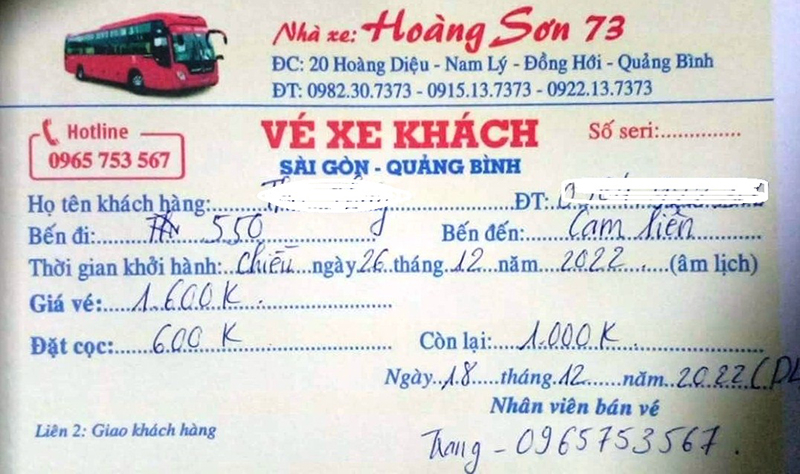 Nhà xe: Hoàng Sơn 73
ĐC: 20 Hoàng Diệu - Nam Lý - Đồng Hới - Quảng Bình
ĐT: 0982.30.7373 - 0915.13.7373 - 0922.13.7373
Hotline
0965 753 567
VÉ XE KHÁCH
Số seri:
SÀI GÒN - QUẢNG BÌNH
Họ tên khách hàng: ĐT:
Bến đi: 550 Bến đến: Cam liên
Thời gian khởi hành: chiều ngày 26 tháng 12 năm 2022 (âm lịch)
Giá vé: 1.600K
Đặt cọc: 600 K Còn lại: 1.000 K
Ngày 18 tháng 12 năm 2022 (DL
Nhân viên bán vé
Liên 2: Giao khách hàng
Trang - 0965753567.